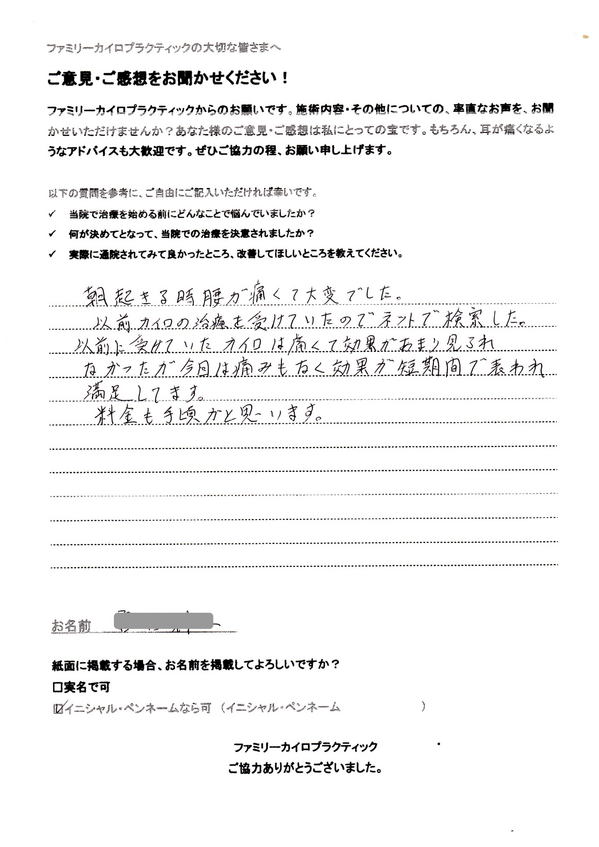 ファミリーカイロプラクティックの大切な皆さまへ
ご意見・ご感想をお聞かせください！
ファミリーカイロプラクティックからのお願いです。施術内容・その他についての、率直なお声を、お聞
かせいただけませんか？あなた様のご意見・ご感想は私にとっての宝です。もちろん、耳が痛くなるよ
うなアドバイスも大歓迎です。ぜひご協力の程、お願い申し上げます。
以下の質問を参考に、ご自由にご記入いただければ幸いです。
✓ 当院で治療を始める前にどんなことで悩んでいましたか？
✓ 何が決めてとなって、当院での治療を決意されましたか？
✓ 実際に通院されてみて良かったところ、改善してほしいところを教えてください。
朝起きる時腰が痛くて大変でした。
以前カイロの治療を受けていたのでネットで検索した。
以前に受けていたカイロは痛くて効果があまり見られ
なかったが今回は痛みもなく効果が短期間で表われ
満足してます。
料金も手頃かと思います。
お名前
紙面に掲載する場合、お名前を掲載してよろしいですか？
□実名で可
☑イニシャル・ペンネームなら可（イニシャル・ペンネーム　　　　　　）
ファミリーカイロプラクティック
ご協力ありがとうございました。